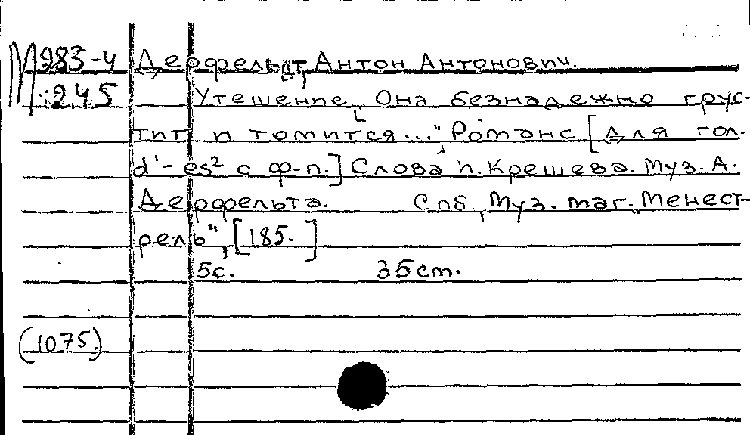 М 983-4 Дерфельдт, Антон Антонович.
:245 Утешение. Она безнадежно грус-
тит и томится..." Романс [для гол.
d'-es² с ф-п.] Слова П. Крешева. Муз. А.
Дерфельта. Спб, Муз. маг. Менест-
рель", [185. ]
5с. 35 ст.
(1075)